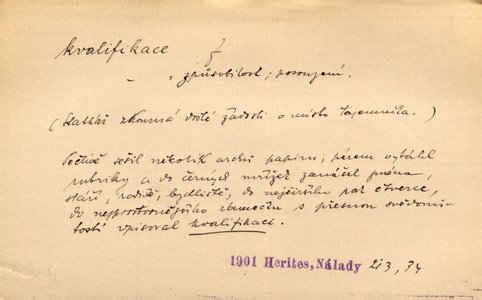 kvalifikace f
- , způsobilost; posouzení.
(Statkář zkoumá došlé žádosti o místo tajemníka.)
Pečlivě sešil několik archů papíru, pérem vytáhl
rubriky a do černých mřížek zanášel jména,
stáří, rodiště, bydliště, do největšího pak čtverce,
do nejprostornějšího rámečku s přesnou svědomi-
tostí vpisoval kvalifikaci.
1901 Herites, Nálady 213, 34